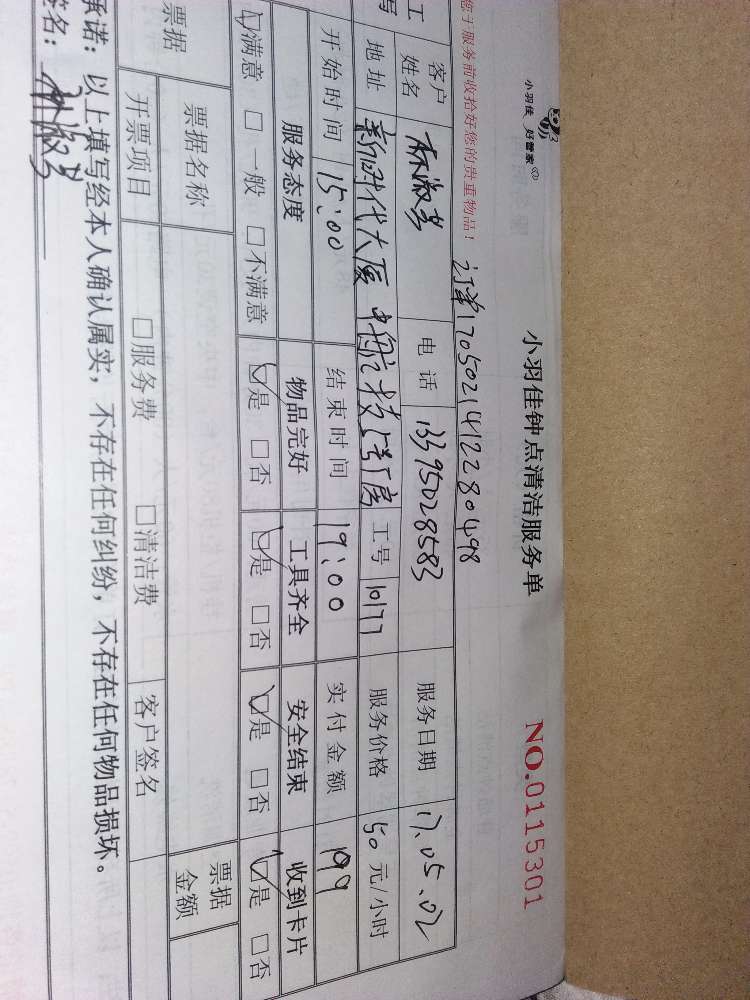 小羽佳 好管家
小羽佳钟点清洁服务单
NO.0115301
您于服务前收拾好您的贵重物品！ 订单170502141228０498
工 客户姓名 林淑芳 电话 13395028583 服务日期 17.05.02
写 地址 新时代大厦 中航技学厂房 工号 10177 服务价格 50 元/小时
开始时间 15:00 结束时间 19:00 实付金额 199
服务态度 物品完好 工具齐全 安全结束 收到卡片
☑满意 □一般 □不满意 ☑是 □否 ☑是 □否 ☑是 □否 ☑是 □否
票据 票据名称 票据金额
开票项目 □服务费 □清洁费 客户签名
承诺：以上填写经本人确认属实，不存在任何纠纷，不存在任何物品损坏。
签名：林淑芳